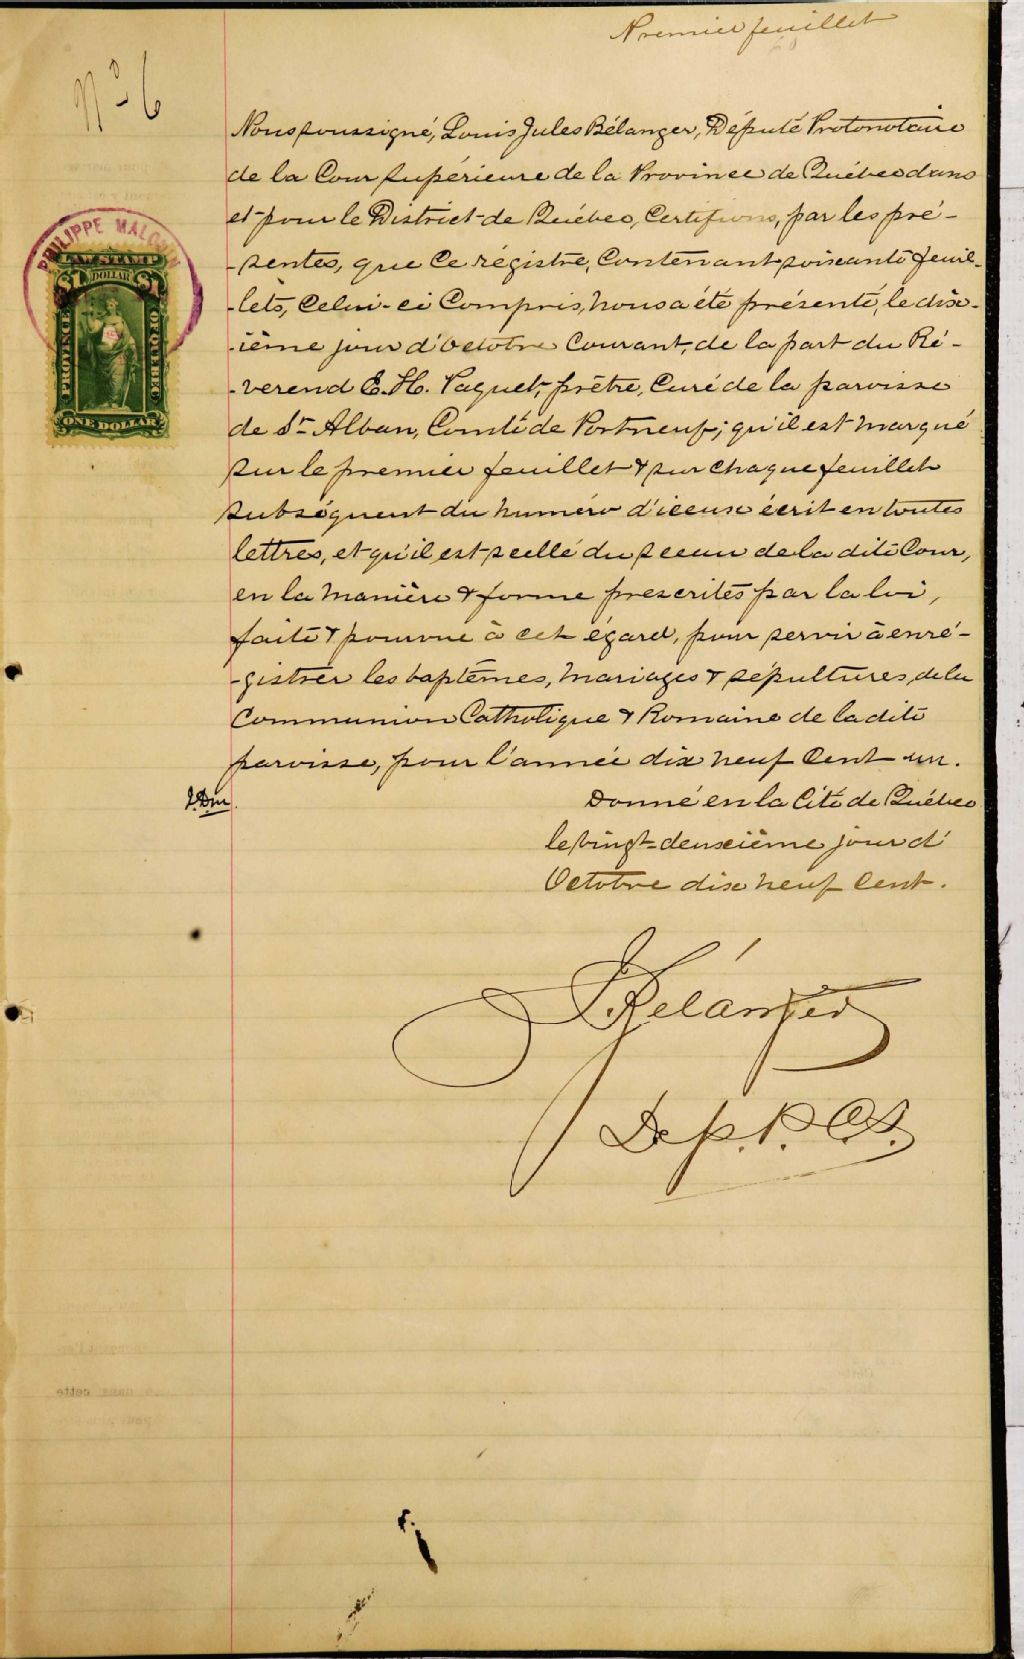 Premier feuillet
No 6
Nous soussigné, Louis Jules Bélanger, Député Protonotaire
de la Cour Supérieure de la Province de Québec dans
et pour le District de Québec, Certifions, par les pré-
-sentes, que ce régistre, Contenant soixante feuil-
-lets, Celui-ci Compris, nous a été présenté, le dix-
-ième jour d'Octobre Courant, de la part du Ré-
-verend E. H. Paquet, prêtre, Curé de la paroisse
de St Alban, Comté de Portneuf; qu'il est marqué
sur le premier feuillet & sur chaque feuillet
subséquent du numéro d'iceux écrit en toutes
lettres, et qu'il est scellé du sceau de la dite Cour,
en la manière & forme prescrites par la loi,
faite & pourvue à cet égard, pour servir à enré-
-gistrer les baptêmes, mariages & sépultures, de la
Communion Catholique & Romaine de la dite
paroisse, pour l'année dix neuf Cent un.
Donné en la Cité de Québec
le vingt-deuxième jour d'
Octobre dix neuf Cent.
J. Bélanger
Dep. P. C. S.
PHILIPPE MALOUIN
LAW STAMP
$1 DOLLAR $1
PROVINCE OF QUEBEC
ONE DOLLAR